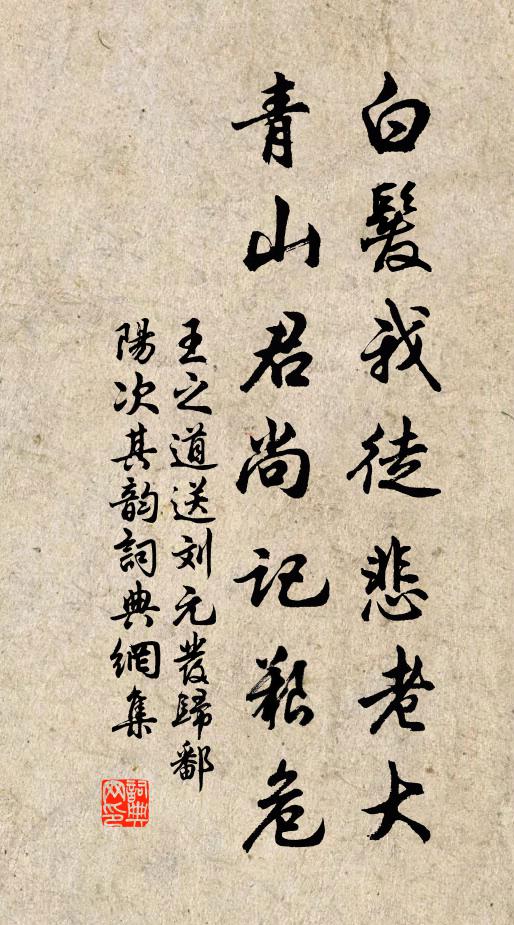 白髮我徒悲老大
青山君尚記艱危
王之道送刘元發歸鄱
陽次其韵詞典網集
詞典
网印